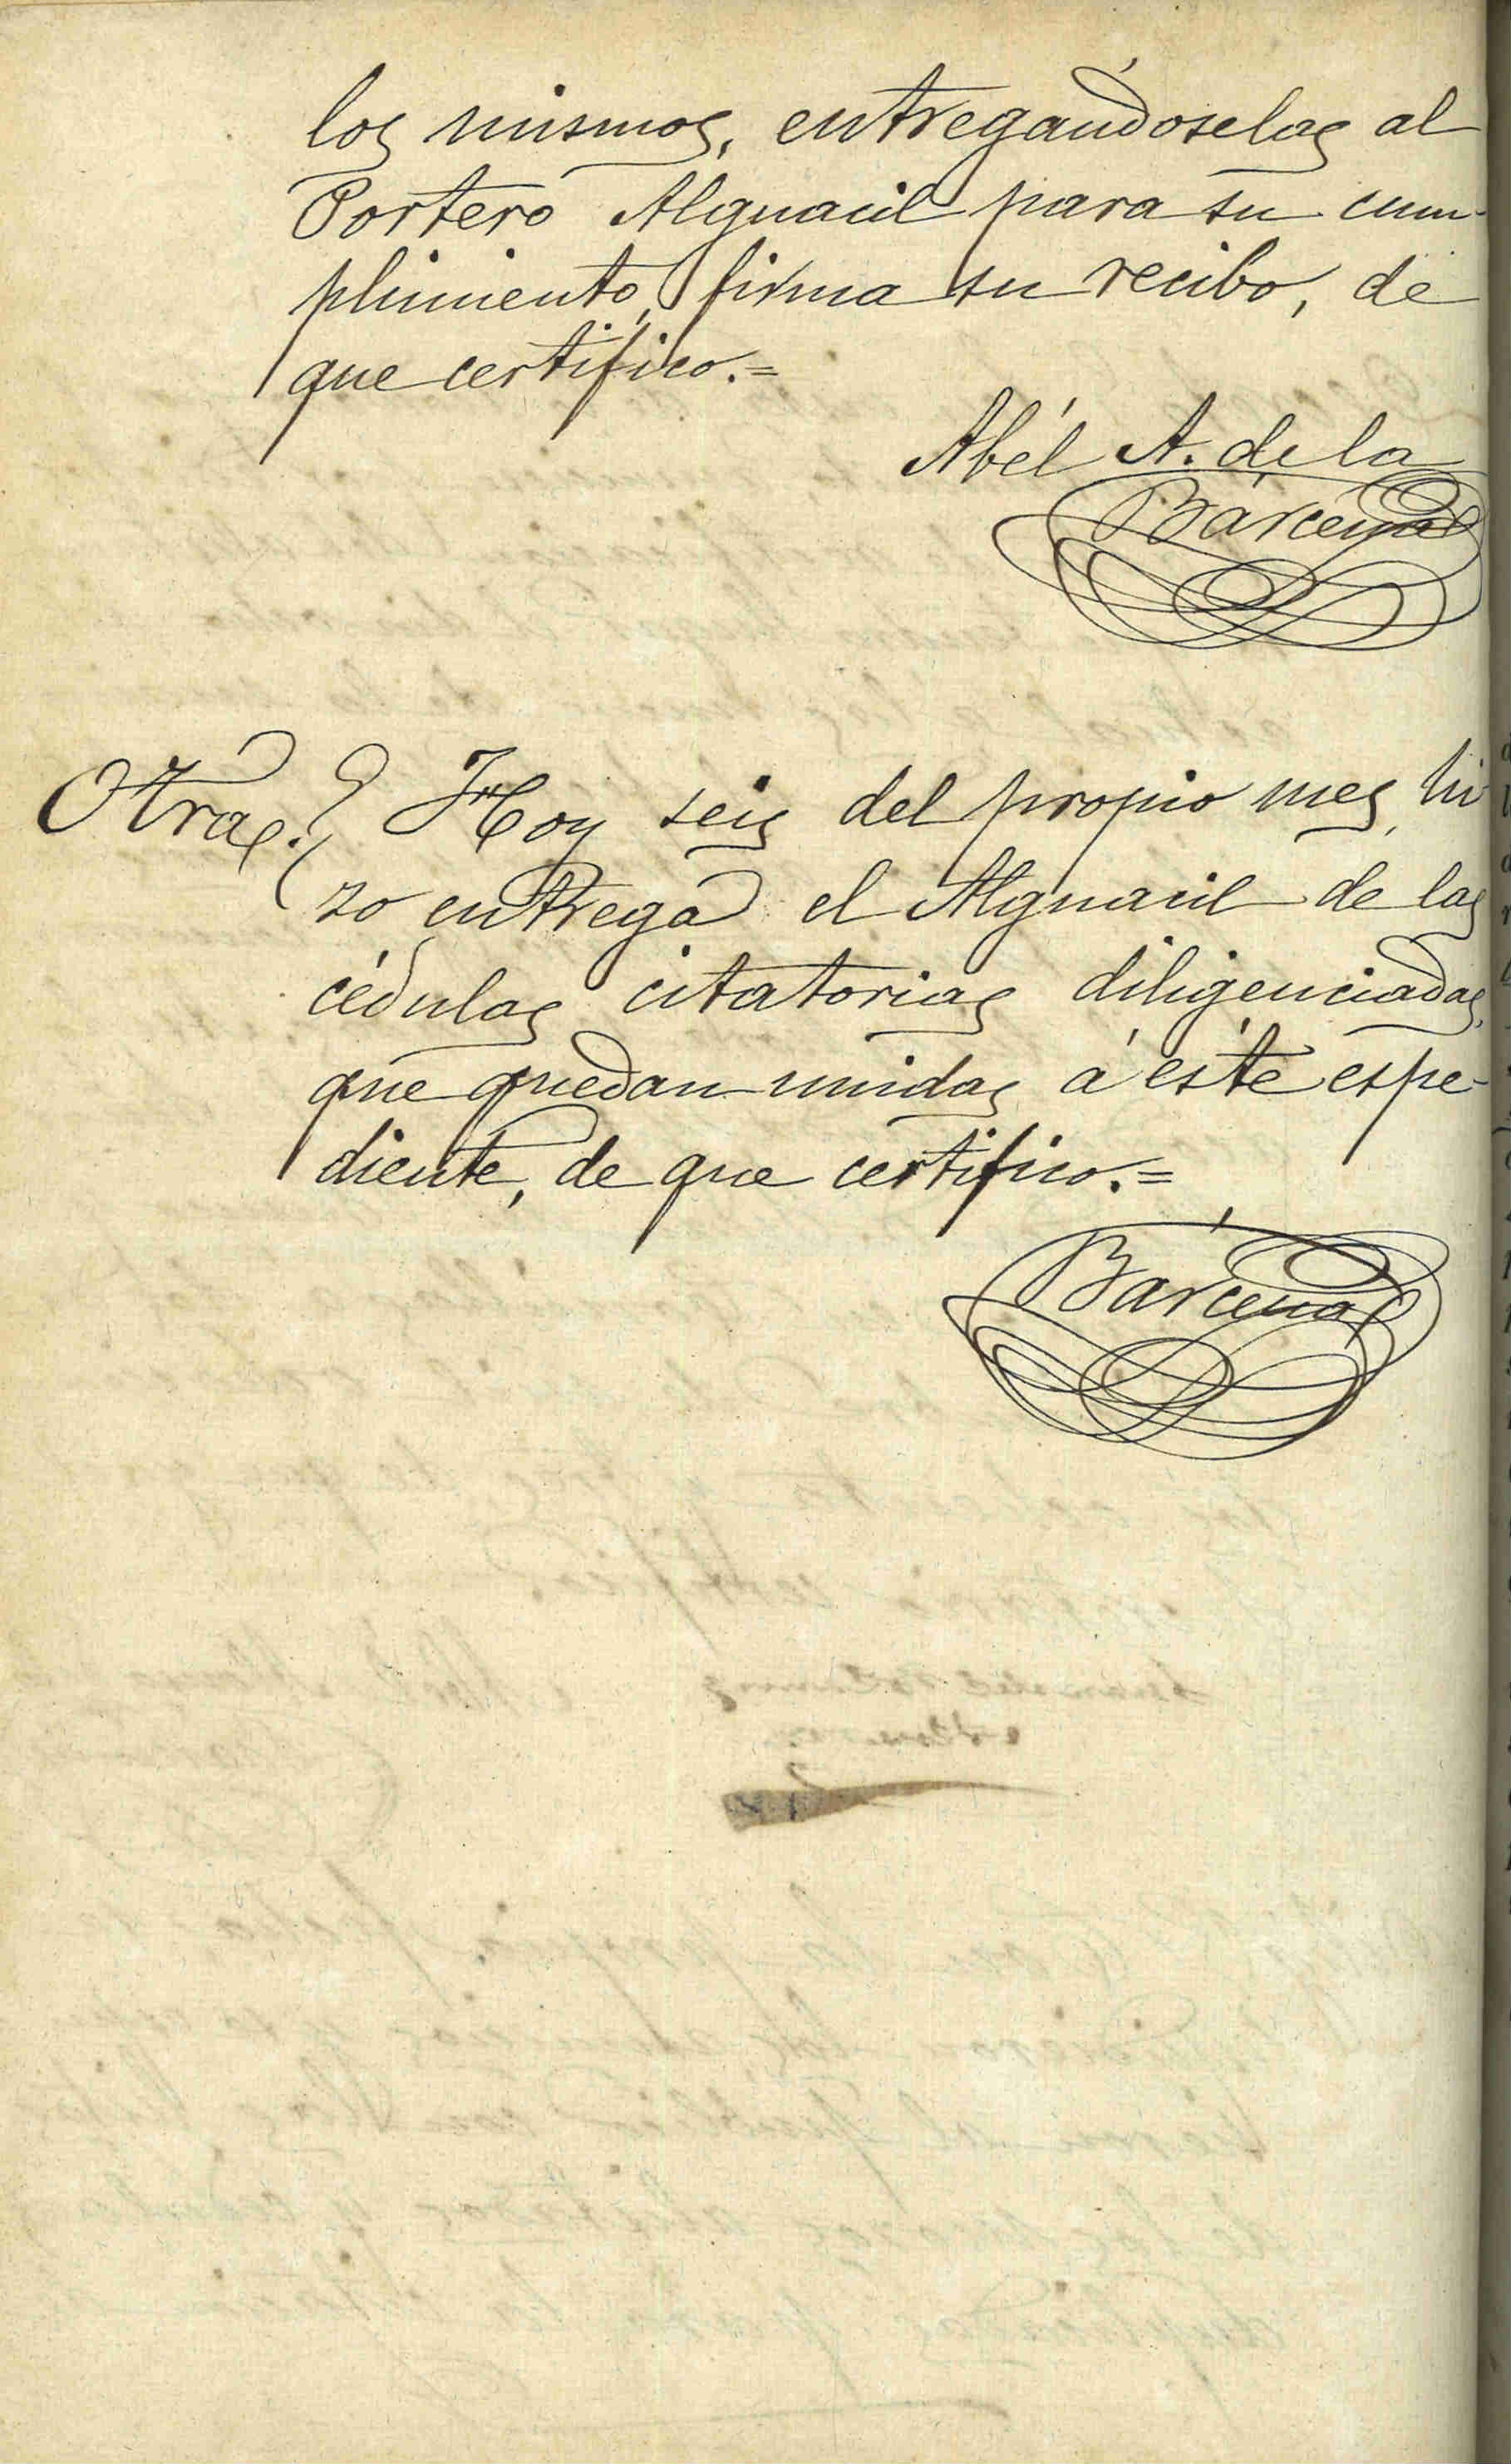 los mismos, entregándoselas al
Portero Alguacil para su cum-
plimiento, firma su recibo, de
que certifico.=
Abél A. de la
Bárcena
Otra. Hoy seis del propio mes, hi
zo entrega el Alguacil de las
cédulas citatorias diligenciadas,
que quedan unidas á éste espe-
diente, de que certifico.=
Bárcena